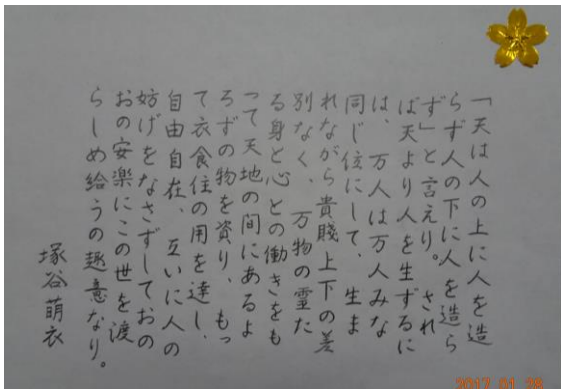 「天は人の上に人を造
らず人の下に人を造ら
ず」と言えり。され
ば天より人を生ずるに
は、万人は万人みな
同じ位にして、生ま
れながら貴賤上下の差
別なく、万物の霊た
る身と心との働きをも
って天地の間にあるよ
ろずの物を資り、もっ
て衣食住の用を達し、
自由自在、互いに人の
妨げをなさずしておの
おの安楽にこの世を渡
らしめ給うの趣意なり。
塚谷萌衣
2017.01.28